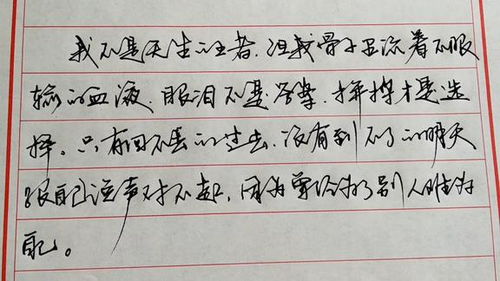 我不是天生的王者，但我骨子里流着不服
输的血液，眼泪不是答案，拼搏才是选
择。只有回不去的过去，没有到不了的明天
跟自己说声对不起，因为曾经为了别人难为
自己。